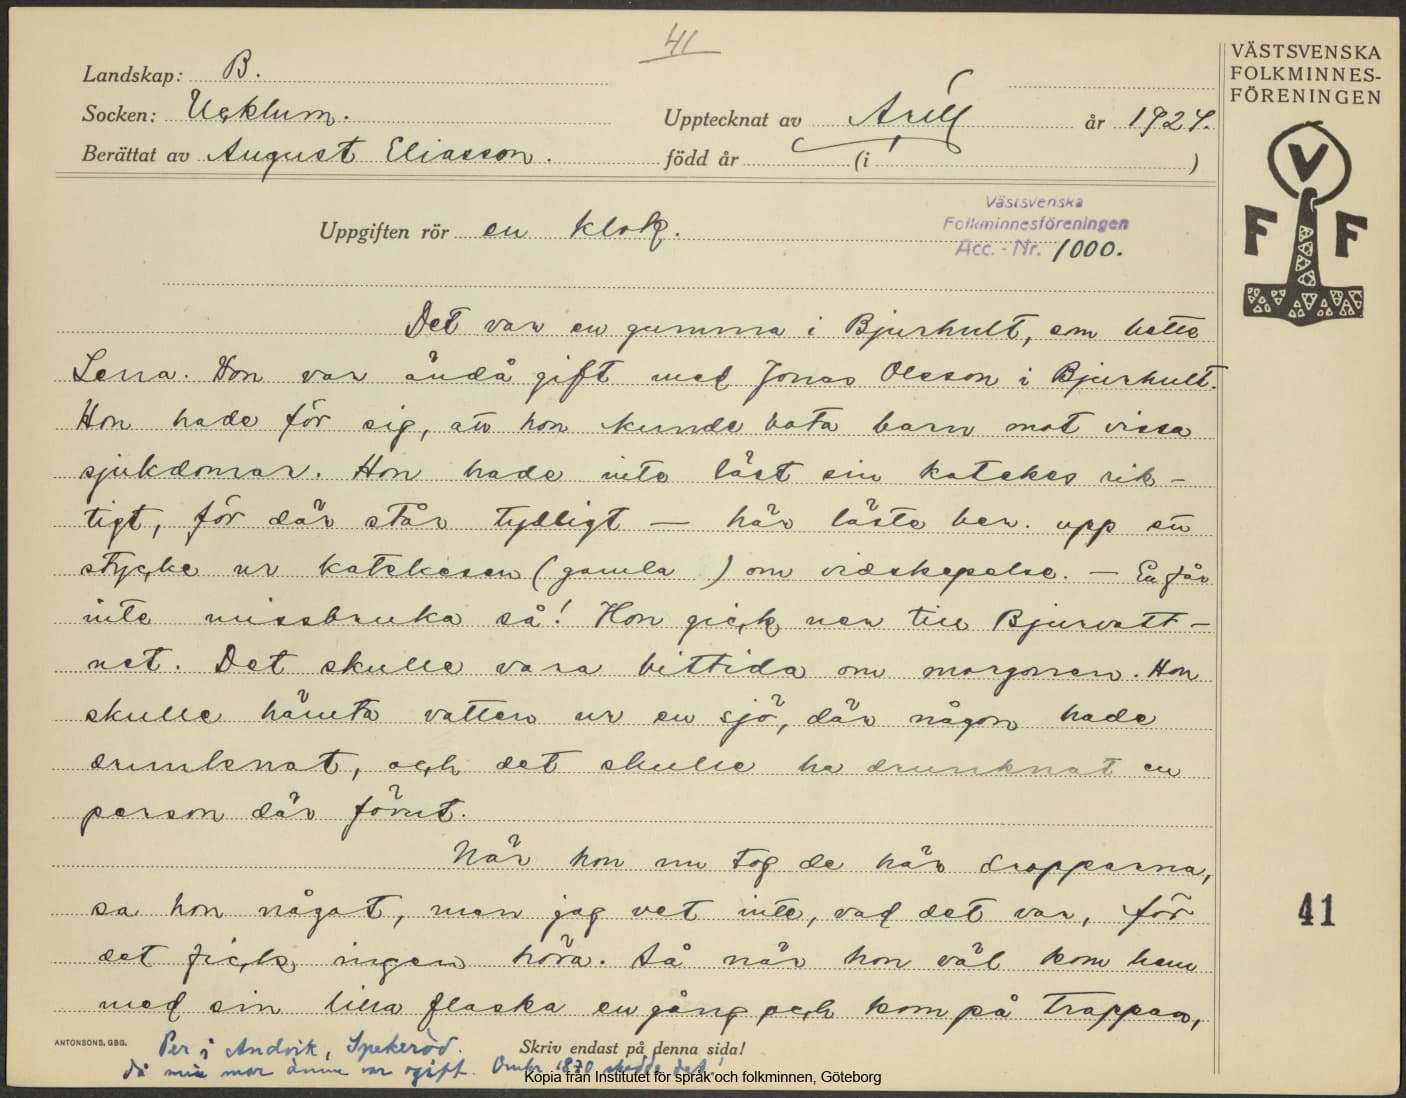 41
Landskap: B.
Socken: Ucklum.
Upptecknat av Arill år 1924.
Berättat av August Eliasson.
född år (i )
VÄSTSVENSKA
FOLKMINNES-
FÖRENINGEN
V
F F
Uppgiften rör en klok.
Västsvenska
Folkminnesföreningen
Acc.-Nr. 1000.
Det var en gumma i Bjurhult, som hette
Lena. Hon var ändå gift med Jonas Olsson i Bjurhult.
Hon hade för sig, att hon kunde bota barn mot vissa
sjukdomar. Hon hade inte läst sin katekes rik-
tigt, för där står tydligt — här läste ber. upp ett
stycke ur katekesen (gamla ) om vidskepelse. — En får
inte missbruka så! Hon gick ner till Bjurvatt-
net. Det skulle vara bittida om morgonen. Hon
skulle hämta vatten ur en sjö, där någon hade
drunknat, och det skulle ha drunknat en
person där förut.
När hon nu tog de här dropparna,
sa hon något, men jag vet inte, vad det var, för
det fick ingen höra. Så när hon väl kom hem
med sin lilla flaska en gång och kom på trappan,
41
ANTONSONS, GBG.
Per i Andvik, Spekeröd.
Skriv endast på denna sida!
då mor ännu var ogift. Omkr 1870 skedde det!
Kopia från Institutet för språk och folkminnen, Göteborg